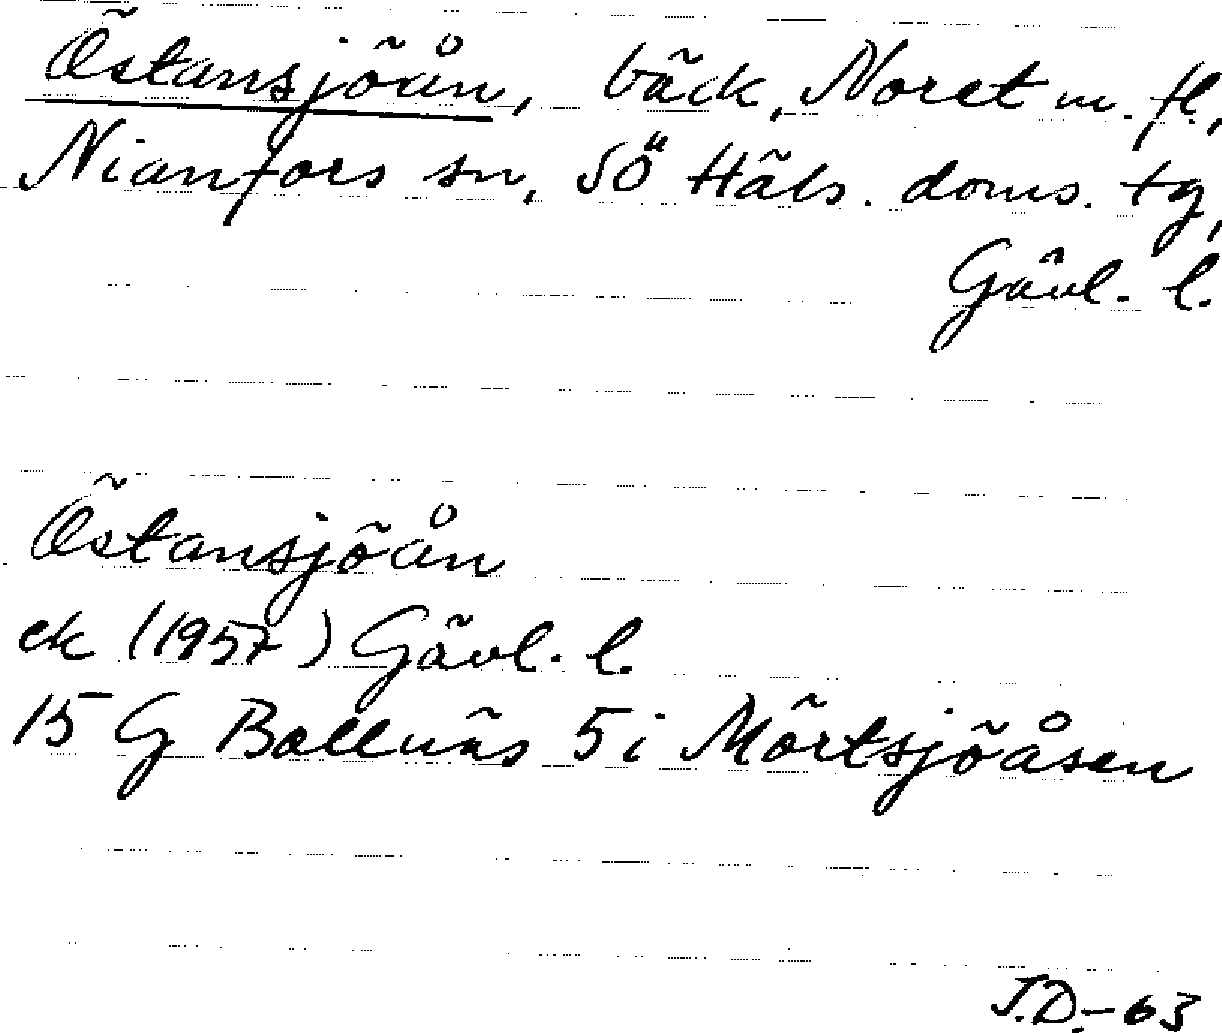 Östansjöån, bäck, Noret m. fl.,
Nianfors sn, SÖ Häls. doms. tg,
Gävl. l.
Östansjöån
ek (1957) Gävl. l.
15 G Bollnäs 5 i Mörtsjöåsen
J.D.-63